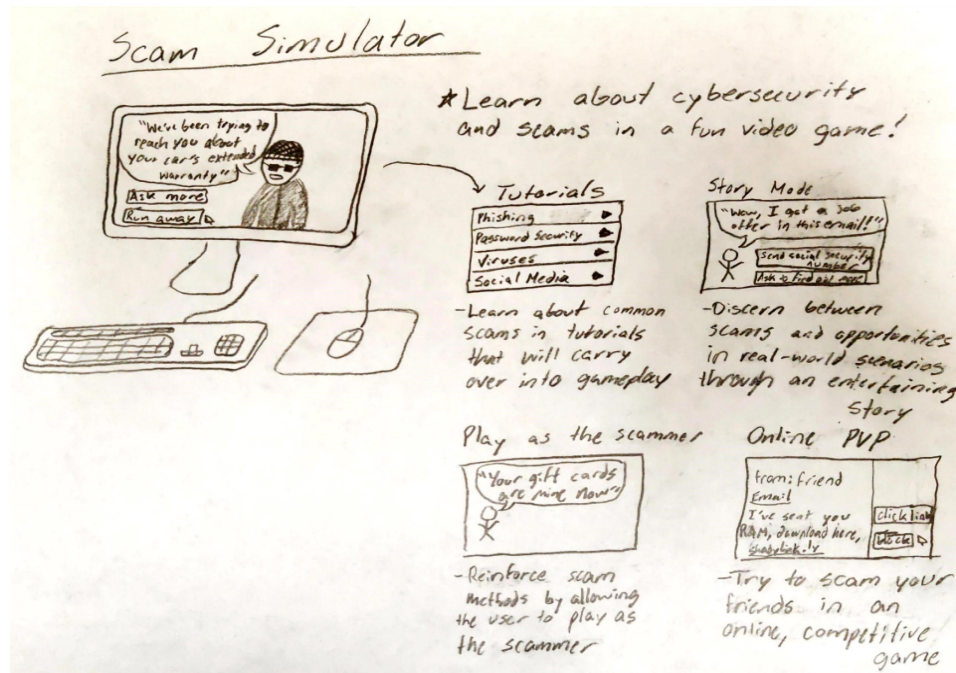 Scam Simulator
"We've been trying to
reach you about
your car's extended
warranty"
Ask more
Run away
*Learn about cybersecurity
and scams in a fun video game!
Tutorials
Phishing
Password Security
Viruses
Social Media
-Learn about common
scams in tutorials
that will carry
over into gameplay
Story Mode
"Wow, I got a job
offer in this email!"
Send social security
number
Ask to find out more
-Discern between
scams and opportunities
in real-world scenarios
through an entertaining
story
Play as the scammer
"Your gift cards
are mine now"
-Reinforce scam
methods by allowing
the user to play as
the scammer
Online PVP
from: friend
Email
I've sent you
RAM, download here,
click link
block
-Try to scam your
friends in an
online, competitive
game